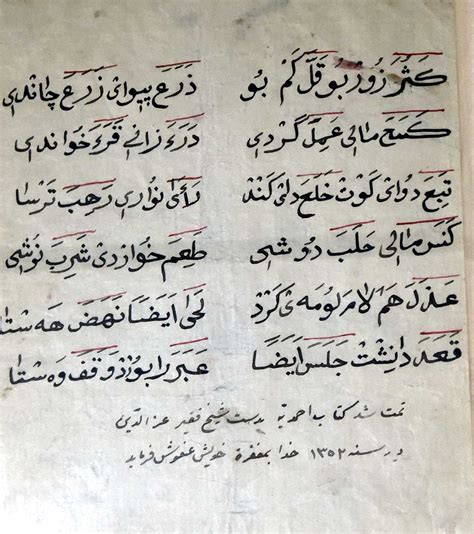 كَثُرَ زوْر بو قَلَّ كَم بو ذَرَعَ پیوای زَرَعَ چاندی
مالی عَمِلَ كردی دَرَءَ زانی قَرَءَ خواندی
تَبِعَ دوای كوت خَلَعَ دلی كند رَأی نواری رَهِبَ ترسا
كَنَسَ مالی حَلَبَ دوشی طَعِمَ خواردی شَرِبَ نوشی
عَذَلَ هَم لامَ لومه ی كرد لَحی اَیضًا نَهَضَ هه ستا
قَعَدَ دانشت جَلَسَ اَیضًا عَبَرَ رابورد وَقَفَ وه ستا
تمت شد كتاب احمدیة بدست شیخ فقیر عزالدین
در سنه ۱۳۵۲ خدا بمغفرة خویش عفوش فرماید